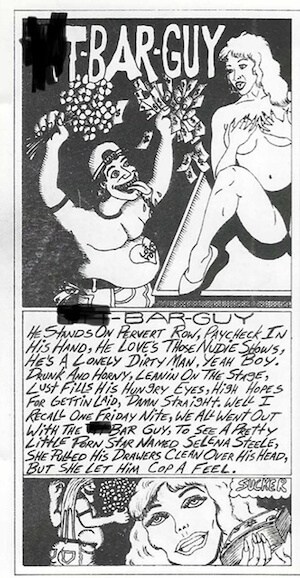 T-BAR-GUY
-BAR-GUY
HE STANDS ON PERVERT ROW, PAYCHECK IN
HIS HAND, HE LOVES THOSE NUDIE SHOWS,
HE'S A LONELY DIRTY MAN, YEAH BOY.
DRUNK AND HORNY, LEANIN ON THE STAGE,
LUST FILLS HIS HUNGRY EYES, HIGH HOPES
FOR GETTIN LAID, DAMN STRAIGHT. WELL I
RECALL ONE FRIDAY NITE, WE ALL WENT OUT
WITH THE BAR GUY. TO SEE A PRETTY
LITTLE PORN STAR NAMED SELENA STEELE,
SHE PULLED HIS DRAWERS CLEAN OVER HIS HEAD,
BUT SHE LET HIM COP A FEEL.
SUCKER